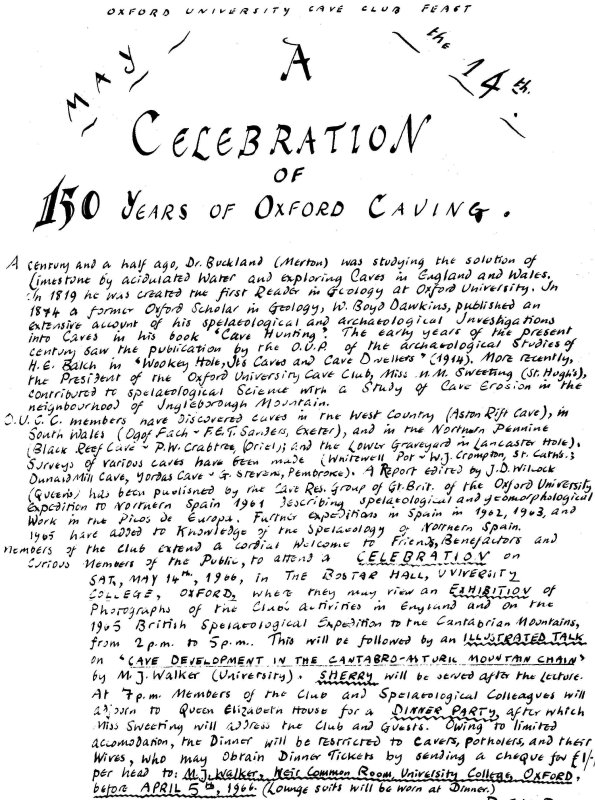 OXFORD UNIVERSITY CAVE CLUB FEAST
MAY the 14th.
A
CELEBRATION
OF
150 YEARS OF OXFORD CAVING.
A century and a half ago, Dr. Buckland (Merton) was studying the solution of
Limestone by acidulated Water and exploring Caves in England and Wales.
In 1819 he was created the first Reader in Geology at Oxford University. In
1874 a former Oxford Scholar in Geology, W. Boyd Dawkins, published an
extensive account of his spelaeological and archaeological Investigations
into Caves in his book "Cave Hunting". The early years of the present
century saw the publication by the O.U.P. of the archaeological Studies of
H.E. Balch in "Wookey Hole, Its Caves and Cave Dwellers" (1914). More recently,
the President of the Oxford University Cave Club, Miss M.M. Sweeting (St. Hugh's),
contributed to spelaeological Science with a Study of Cave Erosion in the
neighbourhood of Ingleborough Mountain.
O.U.C.C. members have discovered caves in the West Country (Aston Rift Cave), in
South Wales (Ogof Fach - F.E.T. Sanders, Exeter), and in the Northern Pennine
(Black Reef Cave - P.W. Crabtree, Oriel; and the Lower Graveyard in Lancaster Hole).
Surveys of various caves have been made (Whitewell Pot - W.J. Crompton, St. Caths.;
Dunald Mill Cave, Yordas Cave - G. Stevens, Pembroke). A Report edited by J.D. Wilcock
(Queens) has been published by the Cave Res. Group of Gt. Brit. of the Oxford University
Expedition to Northern Spain 1961 describing spelaeological and geomorphological
Work in the Picos de Europa. Further expeditions in Spain in 1962, 1963, and
1965 have added to Knowledge of the Spelaeology of Northern Spain.
Members of the Club extend a cordial Welcome to Friends, Benefactors and
Curious Members of the Public, to attend a CELEBRATION on
SAT, MAY 14th, 1966, in THE BOSTAR HALL, UNIVERSITY
COLLEGE, OXFORD, where they may view an EXHIBITION of
Photographs of the Club's activities in England and on the
1965 British Spelaeological Expedition to the Cantabrian Mountains,
from 2 p.m. to 5 p.m. This will be followed by an ILLUSTRATED TALK
on "CAVE DEVELOPMENT IN THE CANTABRO-ASTURIC MOUNTAIN CHAIN"
by M.J. Walker (University). SHERRY will be served after the Lecture.
At 7 p.m. Members of the Club and Spelaeological Colleagues will
adjorn to Queen Elizabeth House for a DINNER PARTY, after which
Miss Sweeting will address the Club and Guests. Owing to limited
accomodation, the Dinner will be restricted to Cavers, potholers, and their
Wives, who may obtain Dinner Tickets by sending a cheque for £1/-/-
per head to: M.J. Walker, Weir Common Room, University College, OXFORD,
before APRIL 5th, 1966. (Lounge suits will be worn at Dinner.)